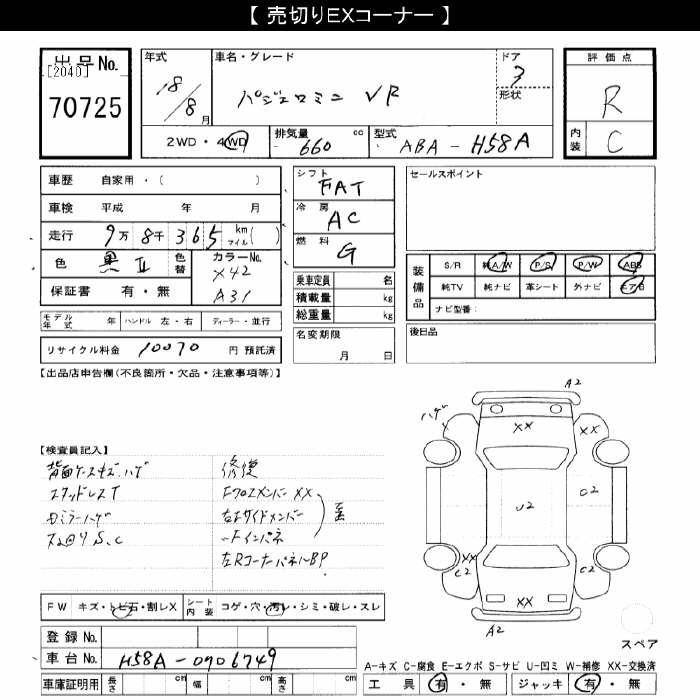 【 売切りEXコーナー 】
出品No.
[2040]
70725
年式
18/8月
車名・グレード
パジェロミニ VR
ドア
3
形状
評価点
R
内装
C
2WD・4WD
排気量
660 cc
型式
ABA - H58A
車歴 自家用・( )
車検 平成 年 月
走行 9万 8千 365 km マイル( )
色 黒 II 色替
カラーNo.
X42
A31
保証書 有・無
シフト
FAT
冷房
AC
燃料
G
セールスポイント
装備品
S/R 純A/W P/S P/W ABS
純TV 純ナビ 革シート 外ナビ エアB
ナビ型番:
乗車定員 名
積載量 kg
総重量 kg
モデル年式 年 ハンドル 左・右 ディーラー・並行
名変期限
月 日
後日品
リサイクル料金 10070 円 預託済
【出品店申告欄(不良箇所・欠品・注意事項等)】
A2
ハゲ
XX
XX
U2
C2
XX
C2
C2
XX
A2
スペア
【検査員記入】
背面ケースキズ、ハゲ
スタッドレスT
Dミラーハゲ
下回りS、C
修復
FクロスメンバーXX
左右Fサイドメンバー
Fインパネ
左RコーナーパネルBP
FW キズ・トビ石・割レX シート内装 コゲ・穴・汚レ・シミ・破レ・スレ
登録No.
車台No. H58A-0906749
車庫証明用 長さ cm 幅 cm 高さ cm
A-キズ C-腐食 E-エクボ S-サビ U-凹ミ W-補修 XX-交換済
工具 有・無 ジャッキ 有・無